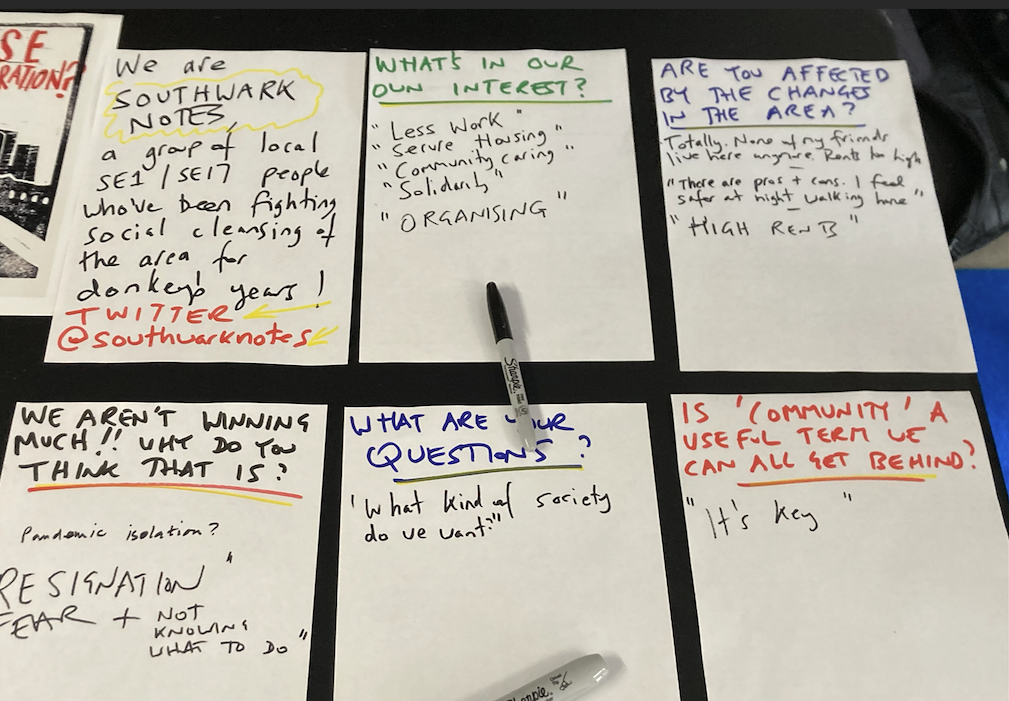 SE
RATION?
We are
SOUTHWARK
NOTES,
a group of local
SE1 / SE17 people
who've been fighting
social cleansing of
the area for
donkey's years!
TWITTER
@southwarknotes
WHAT'S IN OUR
OWN INTEREST?
"Less Work"
"Secure Housing"
"Community caring"
"Solidarity"
"ORGANISING"
ARE YOU AFFECTED
BY THE CHANGES
IN THE AREA?
Totally. None of my friends
live here anymore. Rents too high
"There are pros + cons. I feel
safer at night walking home"
"HIGH RENTS"
WE AREN'T WINNING
MUCH!! WHY DO YOU
THINK THAT IS?
Pandemic isolation?
RESIGNATION"
FEAR + NOT
KNOWING
WHAT TO DO"
WHAT ARE YOUR
QUESTIONS?
'What kind of society
do we want?"
IS 'COMMUNITY' A
USEFUL TERM WE
CAN ALL GET BEHIND?
"It's key"
Sharpie.
Sharpie.